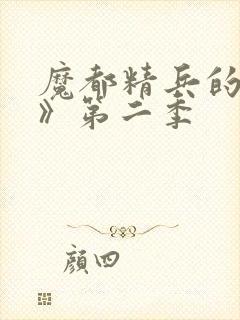 魔都精兵的
》第二季
顔四